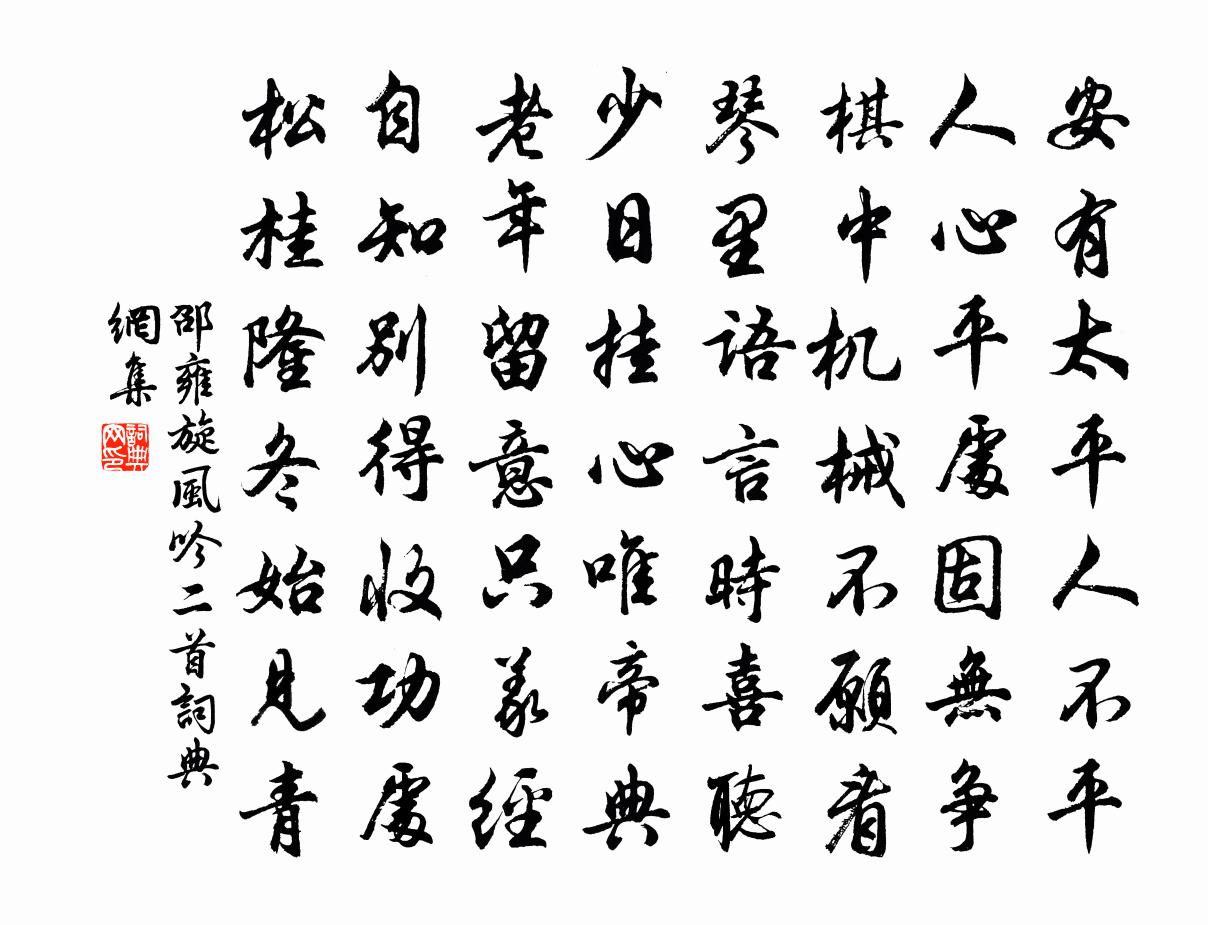 安有太平人不平
人心平處固無争
棋中机械不願看
琴里語言時喜聽
少日挂心唯帝典
老年留意只羲經
自知別得收功處
松桂隆冬始見青
邵雍旋風吟二首詞典
網集
詞典網印